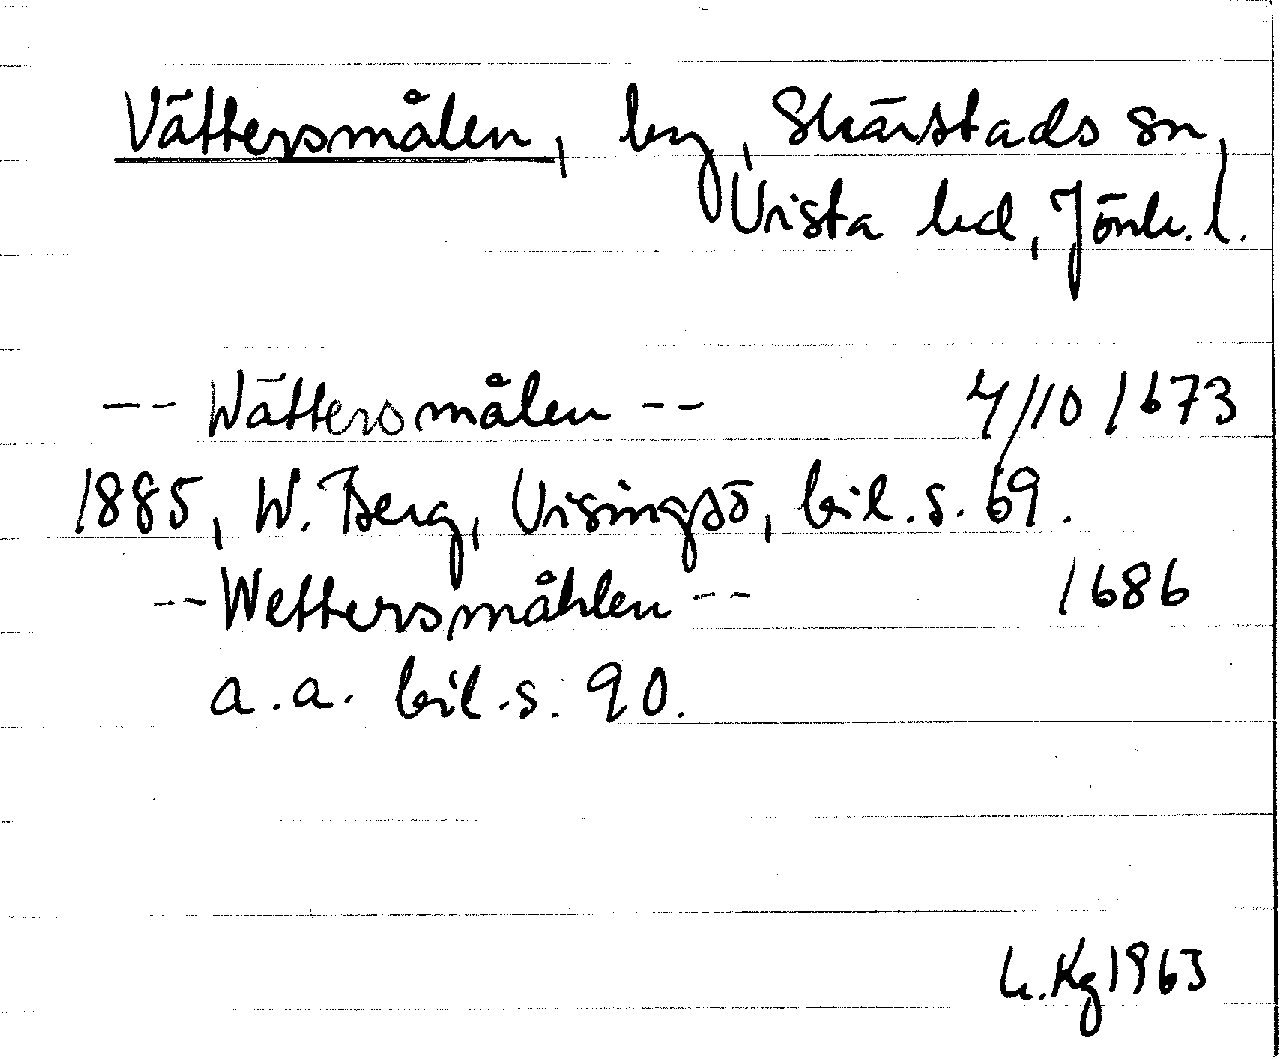 Vättersmålen, by, Skärstads sn,
Vista hd, Jönk. l.
-- Wättersmålen -- 4/10 1673
1885, W. Berg, Visingsö, bil. s. 69.
-- Wettersmåhlen -- 1686
a.a. bil. s. 90.
Kg 1963